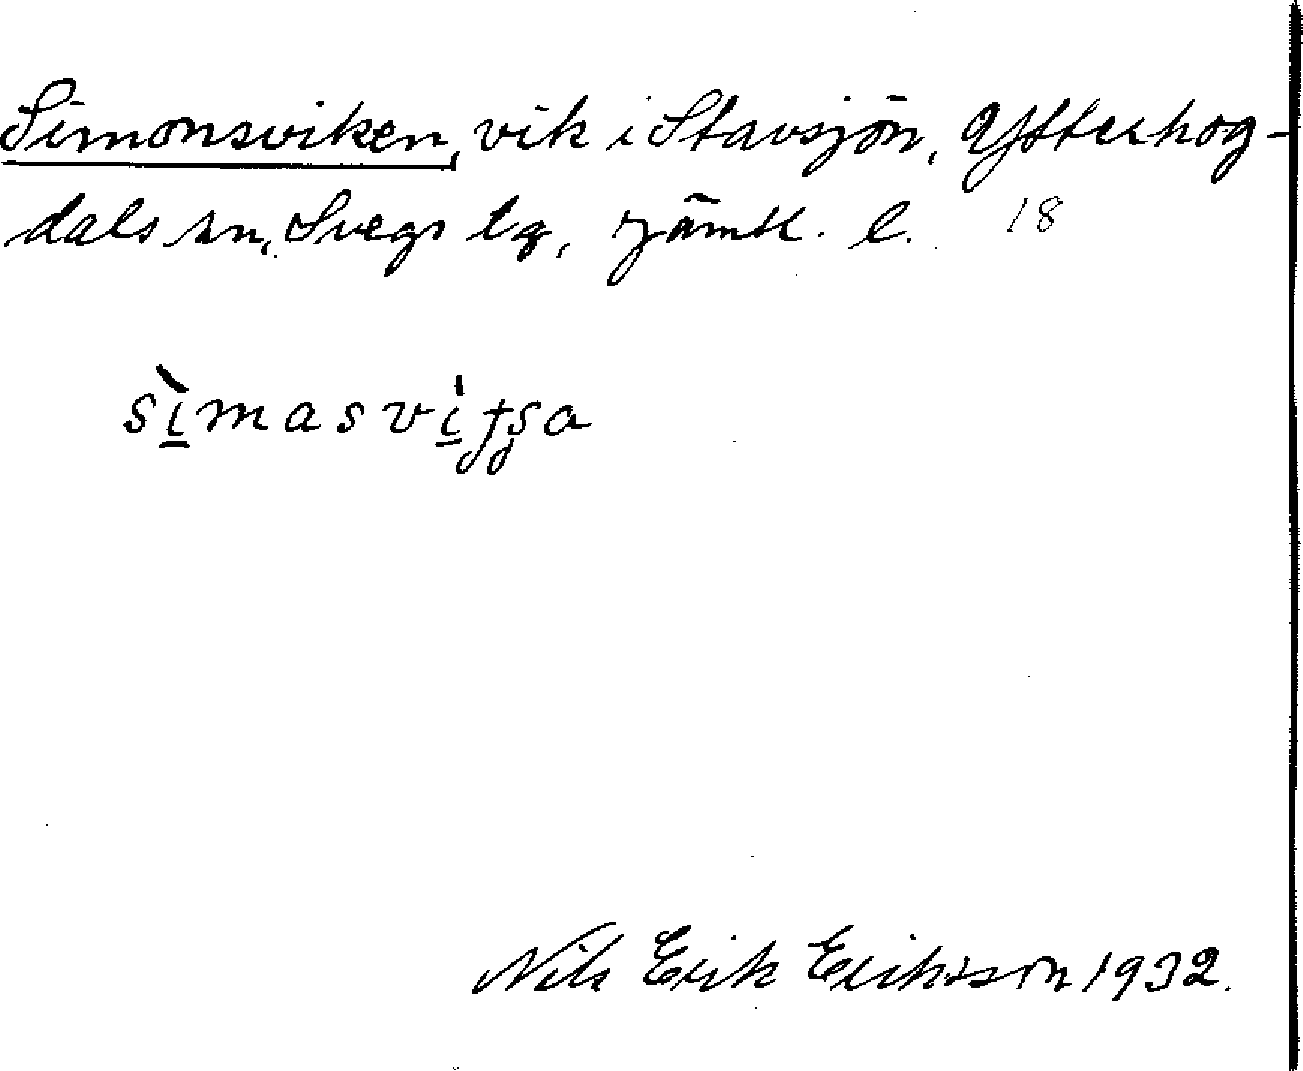 Simonsviken, vik i Stavsjön, Ytterhog-
dals sn, Svegs tg, Jämtl. l. 18
sìmasviʄʂa
Nils Erik Eriksson 1932.